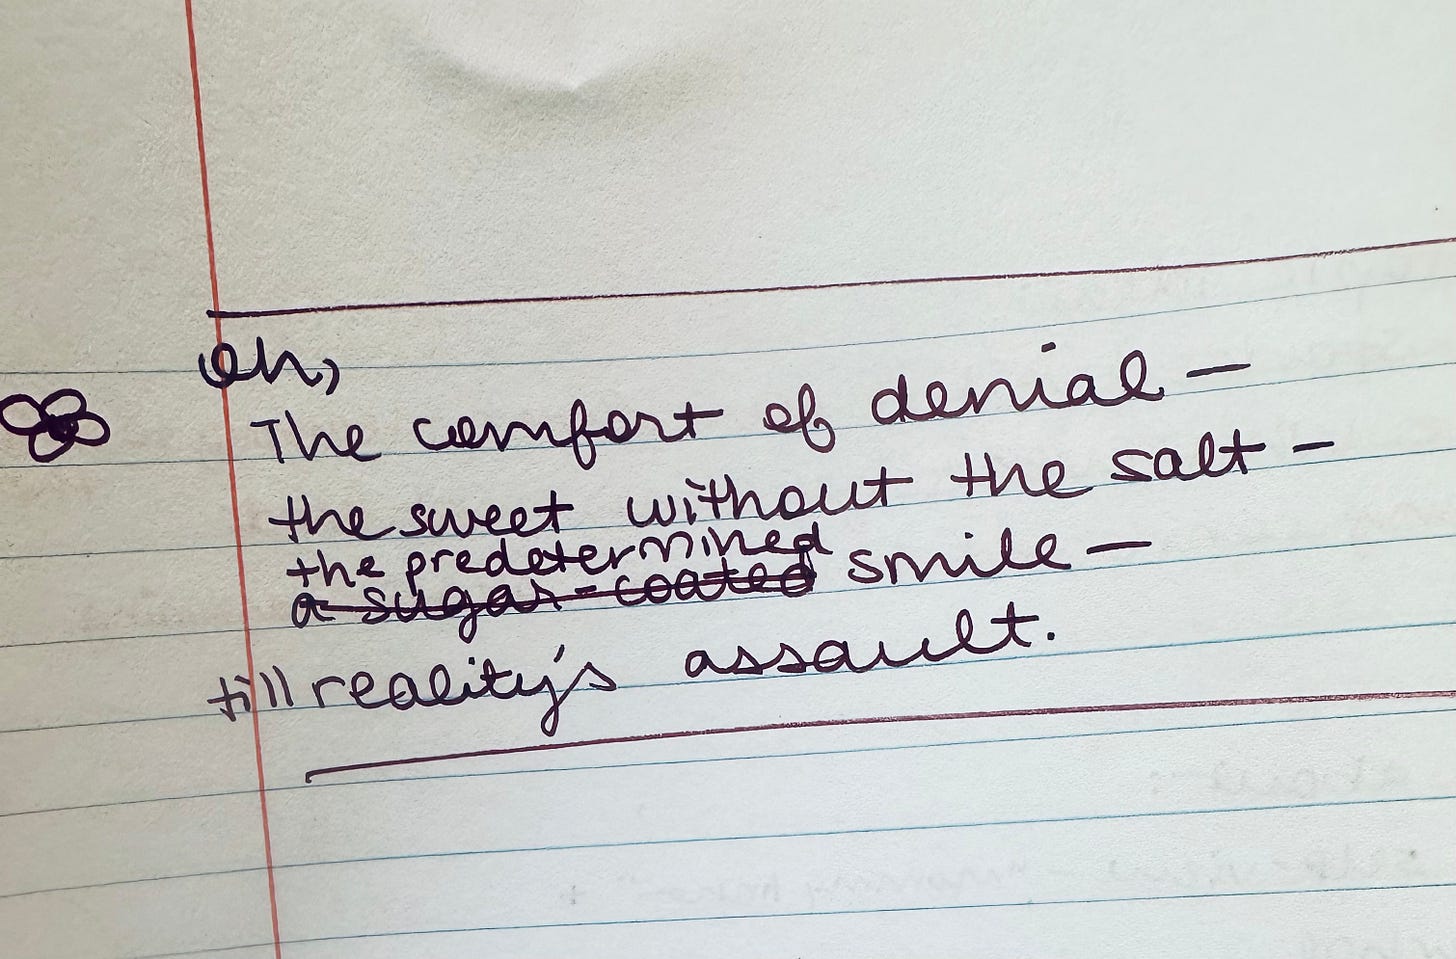 oh,
The comfort of denial —
the sweet without the salt —
the predetermined
a sugar-coated smile —
till reality's assault.